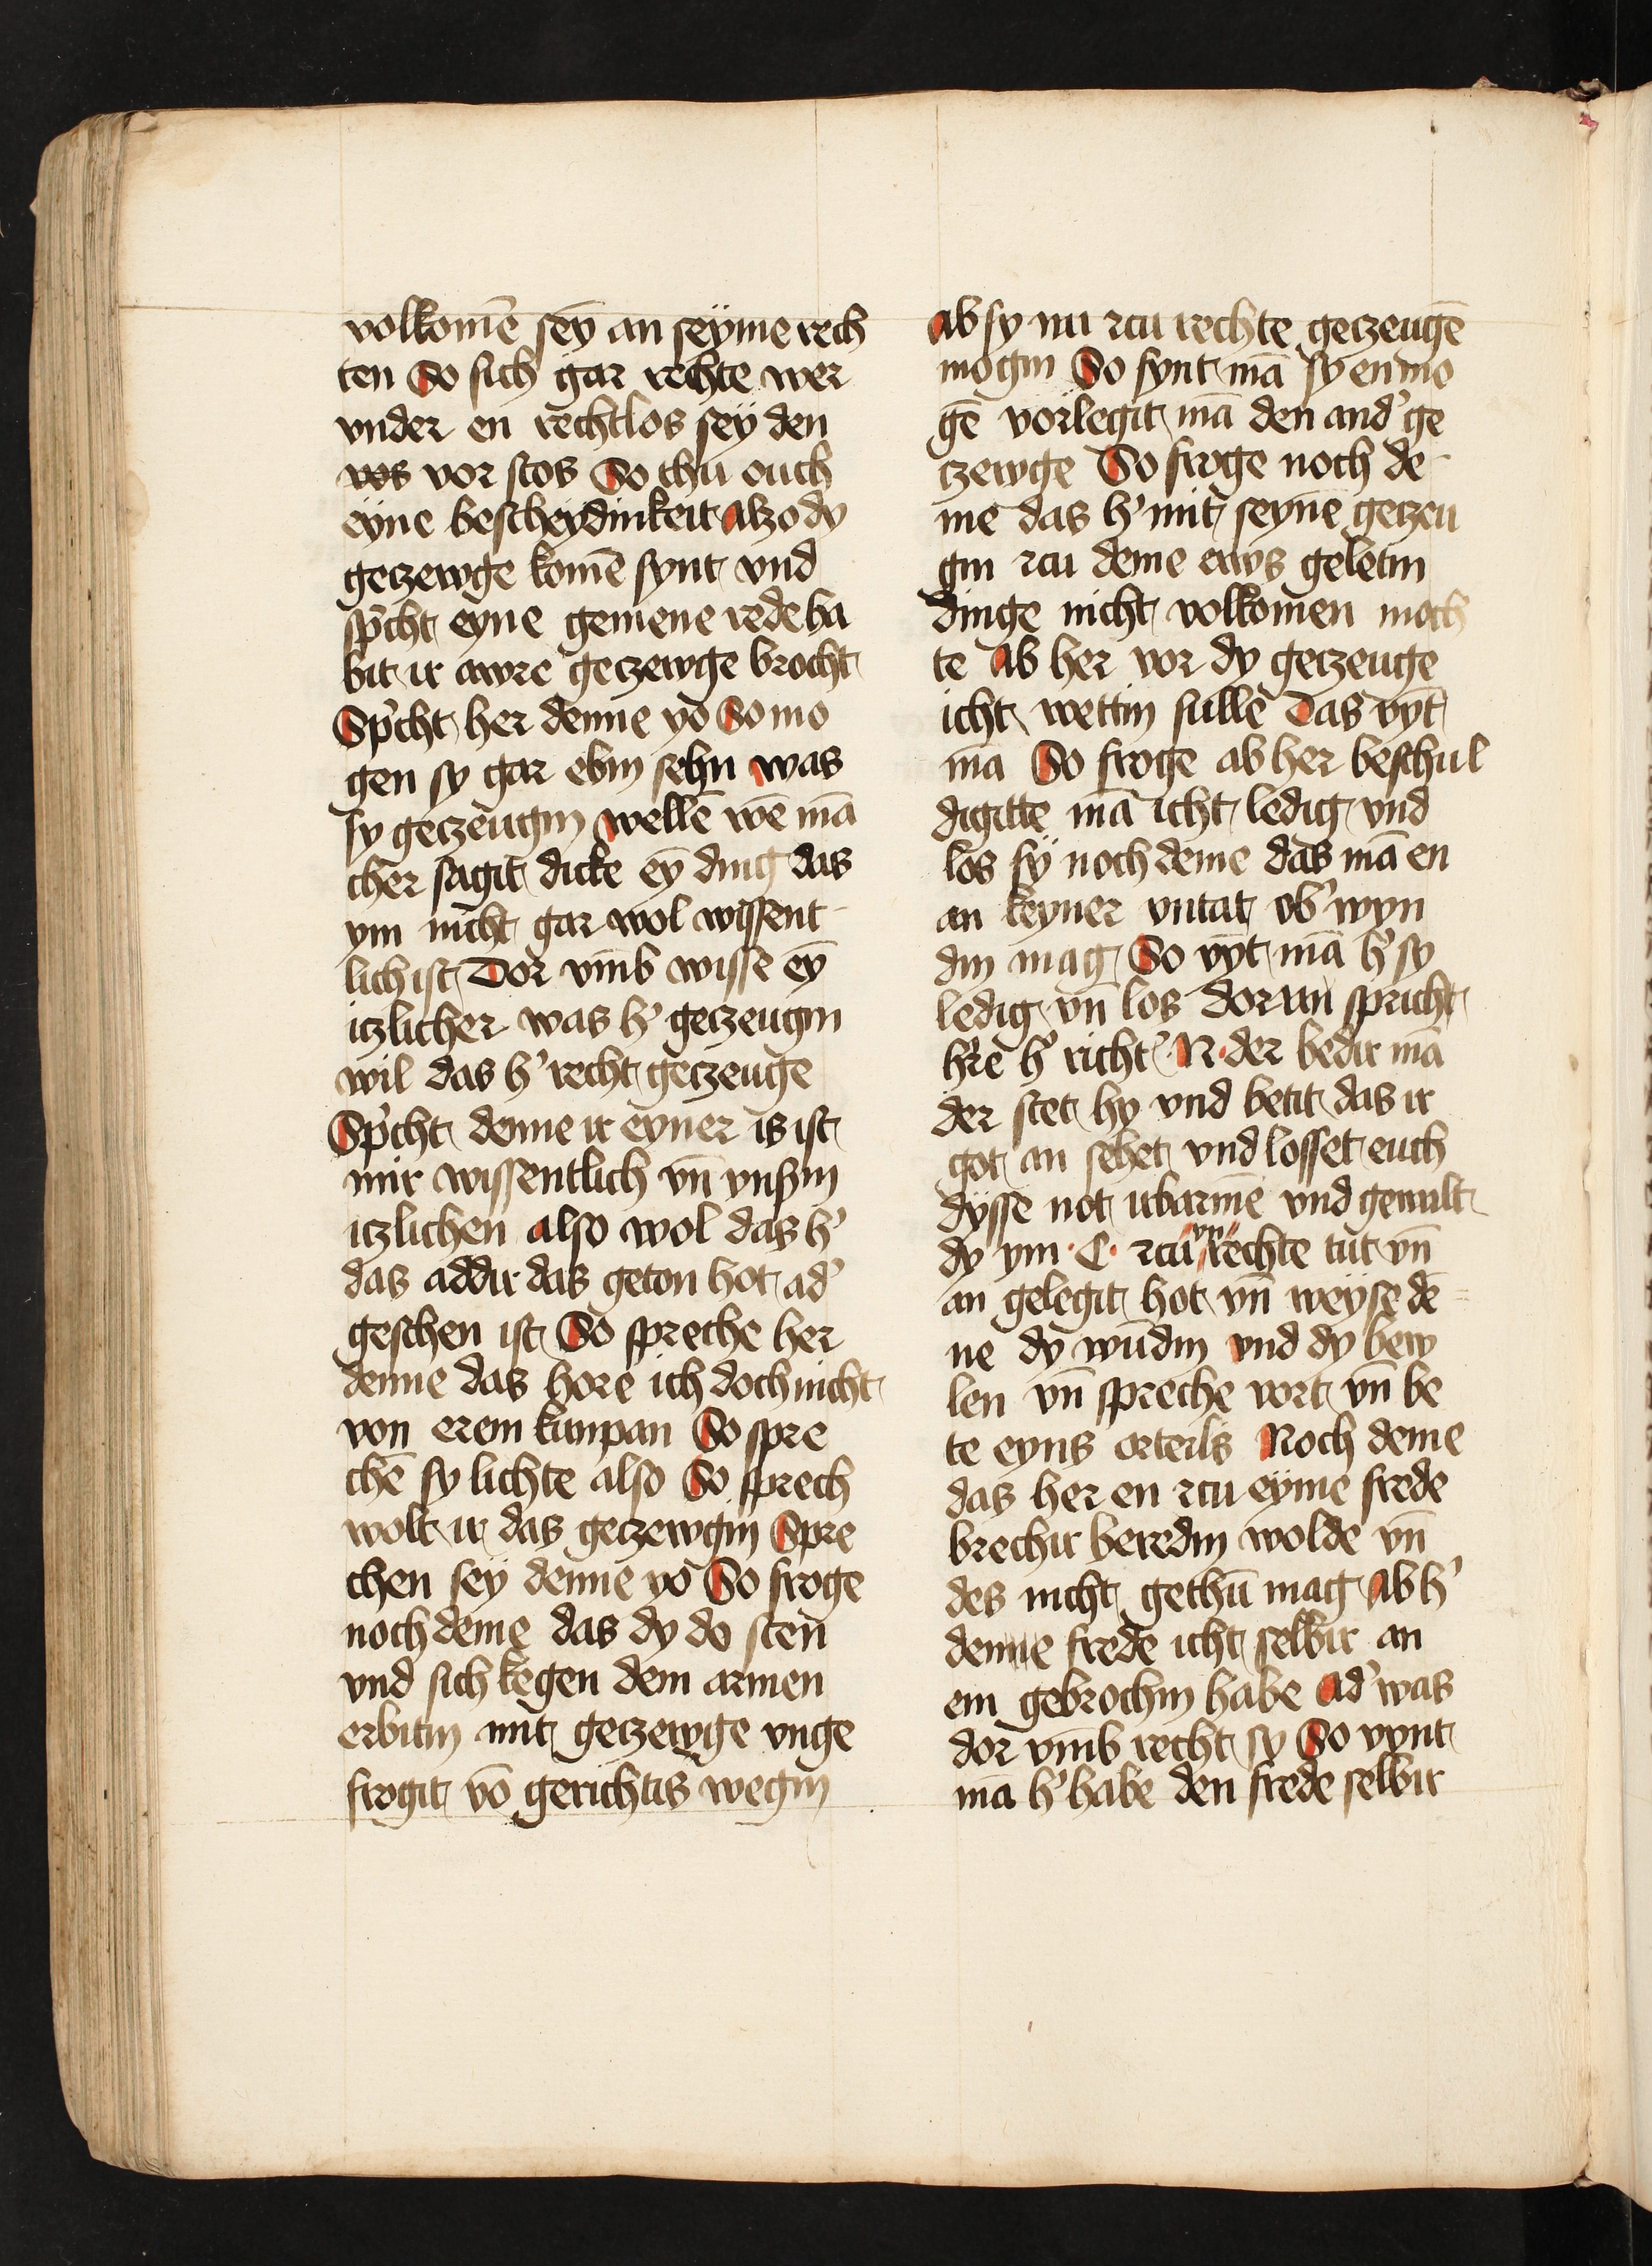 volkomē sey an seyme rech
ten So sich gar rechte wer
vnder en rechtlos sey den
vos vor stos So thu ouch
eyne bescheydinkeit Alzo dy
geczewge komē synt vnd
sp̄cht eyne gemene rede ha
bit ir awre geczewge brocht
Sp̄cht her denne yo So mo
gen sy gar ebin sehn was
sy geczeugin wellē wē mā
cher sagit dicke ey ding das
ym nicht gar wol wissent
lich ist Dor vmb wisse ey
itzlicher was h' geczeugin
wil das h' recht geczeuge
Sp̄cht denne ir eyner is ist
mir wissentlich vn̄ vnßin
itzlichen also wol das h'
das addir das geton hot ad'
geschen ist So spreche her
denne das hore ich doch nicht
von erem kumpan So spre
chē sy lichte also So sprech
wolt ir das geczewgin Spre
chen sey denne yo So froge
noch deme das dy do sten
vnd sich kegen dem armen
erbitin mit geczewge vnge
frogit vō gerichtis wegin
Ab sy nu zcu rechte geczeugē
mogin So fynt mā sy en mo
gē vorlegit mā den and' ge
czewge So froge noch de
me das h' mit seynē geczeu
gin zcu deme ews geletin
dinge nicht volkomen moch
te Ab her vor dy geczeuge
icht wettin sulle Das vyt
mā So froge ab her beschul
digitte mā icht ledig vnd
los sy noch deme das mā en
an keyner vntat ob' wyn
din mag So vyt mā h' sy
ledig vn̄ los dor an spricht
h're h' richt' N der bedir mā
der stet hy vnd betit das ir
got an sehet vnd losset euch
dysse not irbarmē vnd gewalt
dy ym C zcu vn rechte tut vn̄
an gelegit hot vn̄ weyse dē
ne dy wūdin vnd dy bew
len vn̄ spreche vort vn̄ be
te eyns orteils Noch deme
das her en zcu eyme frede
brechir beredin wolde vn̄
des nicht gethū mag Ab h'
denne frede icht selbir an
em gebrochin habe Ad' was
dor vmb recht sy So vynt
mā h' habe den frede selbir